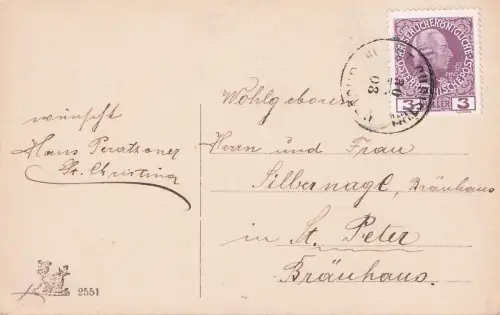 wünscht
Hans Peratzoner
St. Christina
2551
KAISERLICHE KÖNIGLICHE
ÖSTERREICHISCHE POST
3 HELLER 3
08
Wohlgeboren
Herrn und Frau
Silbernagl, Bräuhaus
in St. Peter
Bräuhaus.